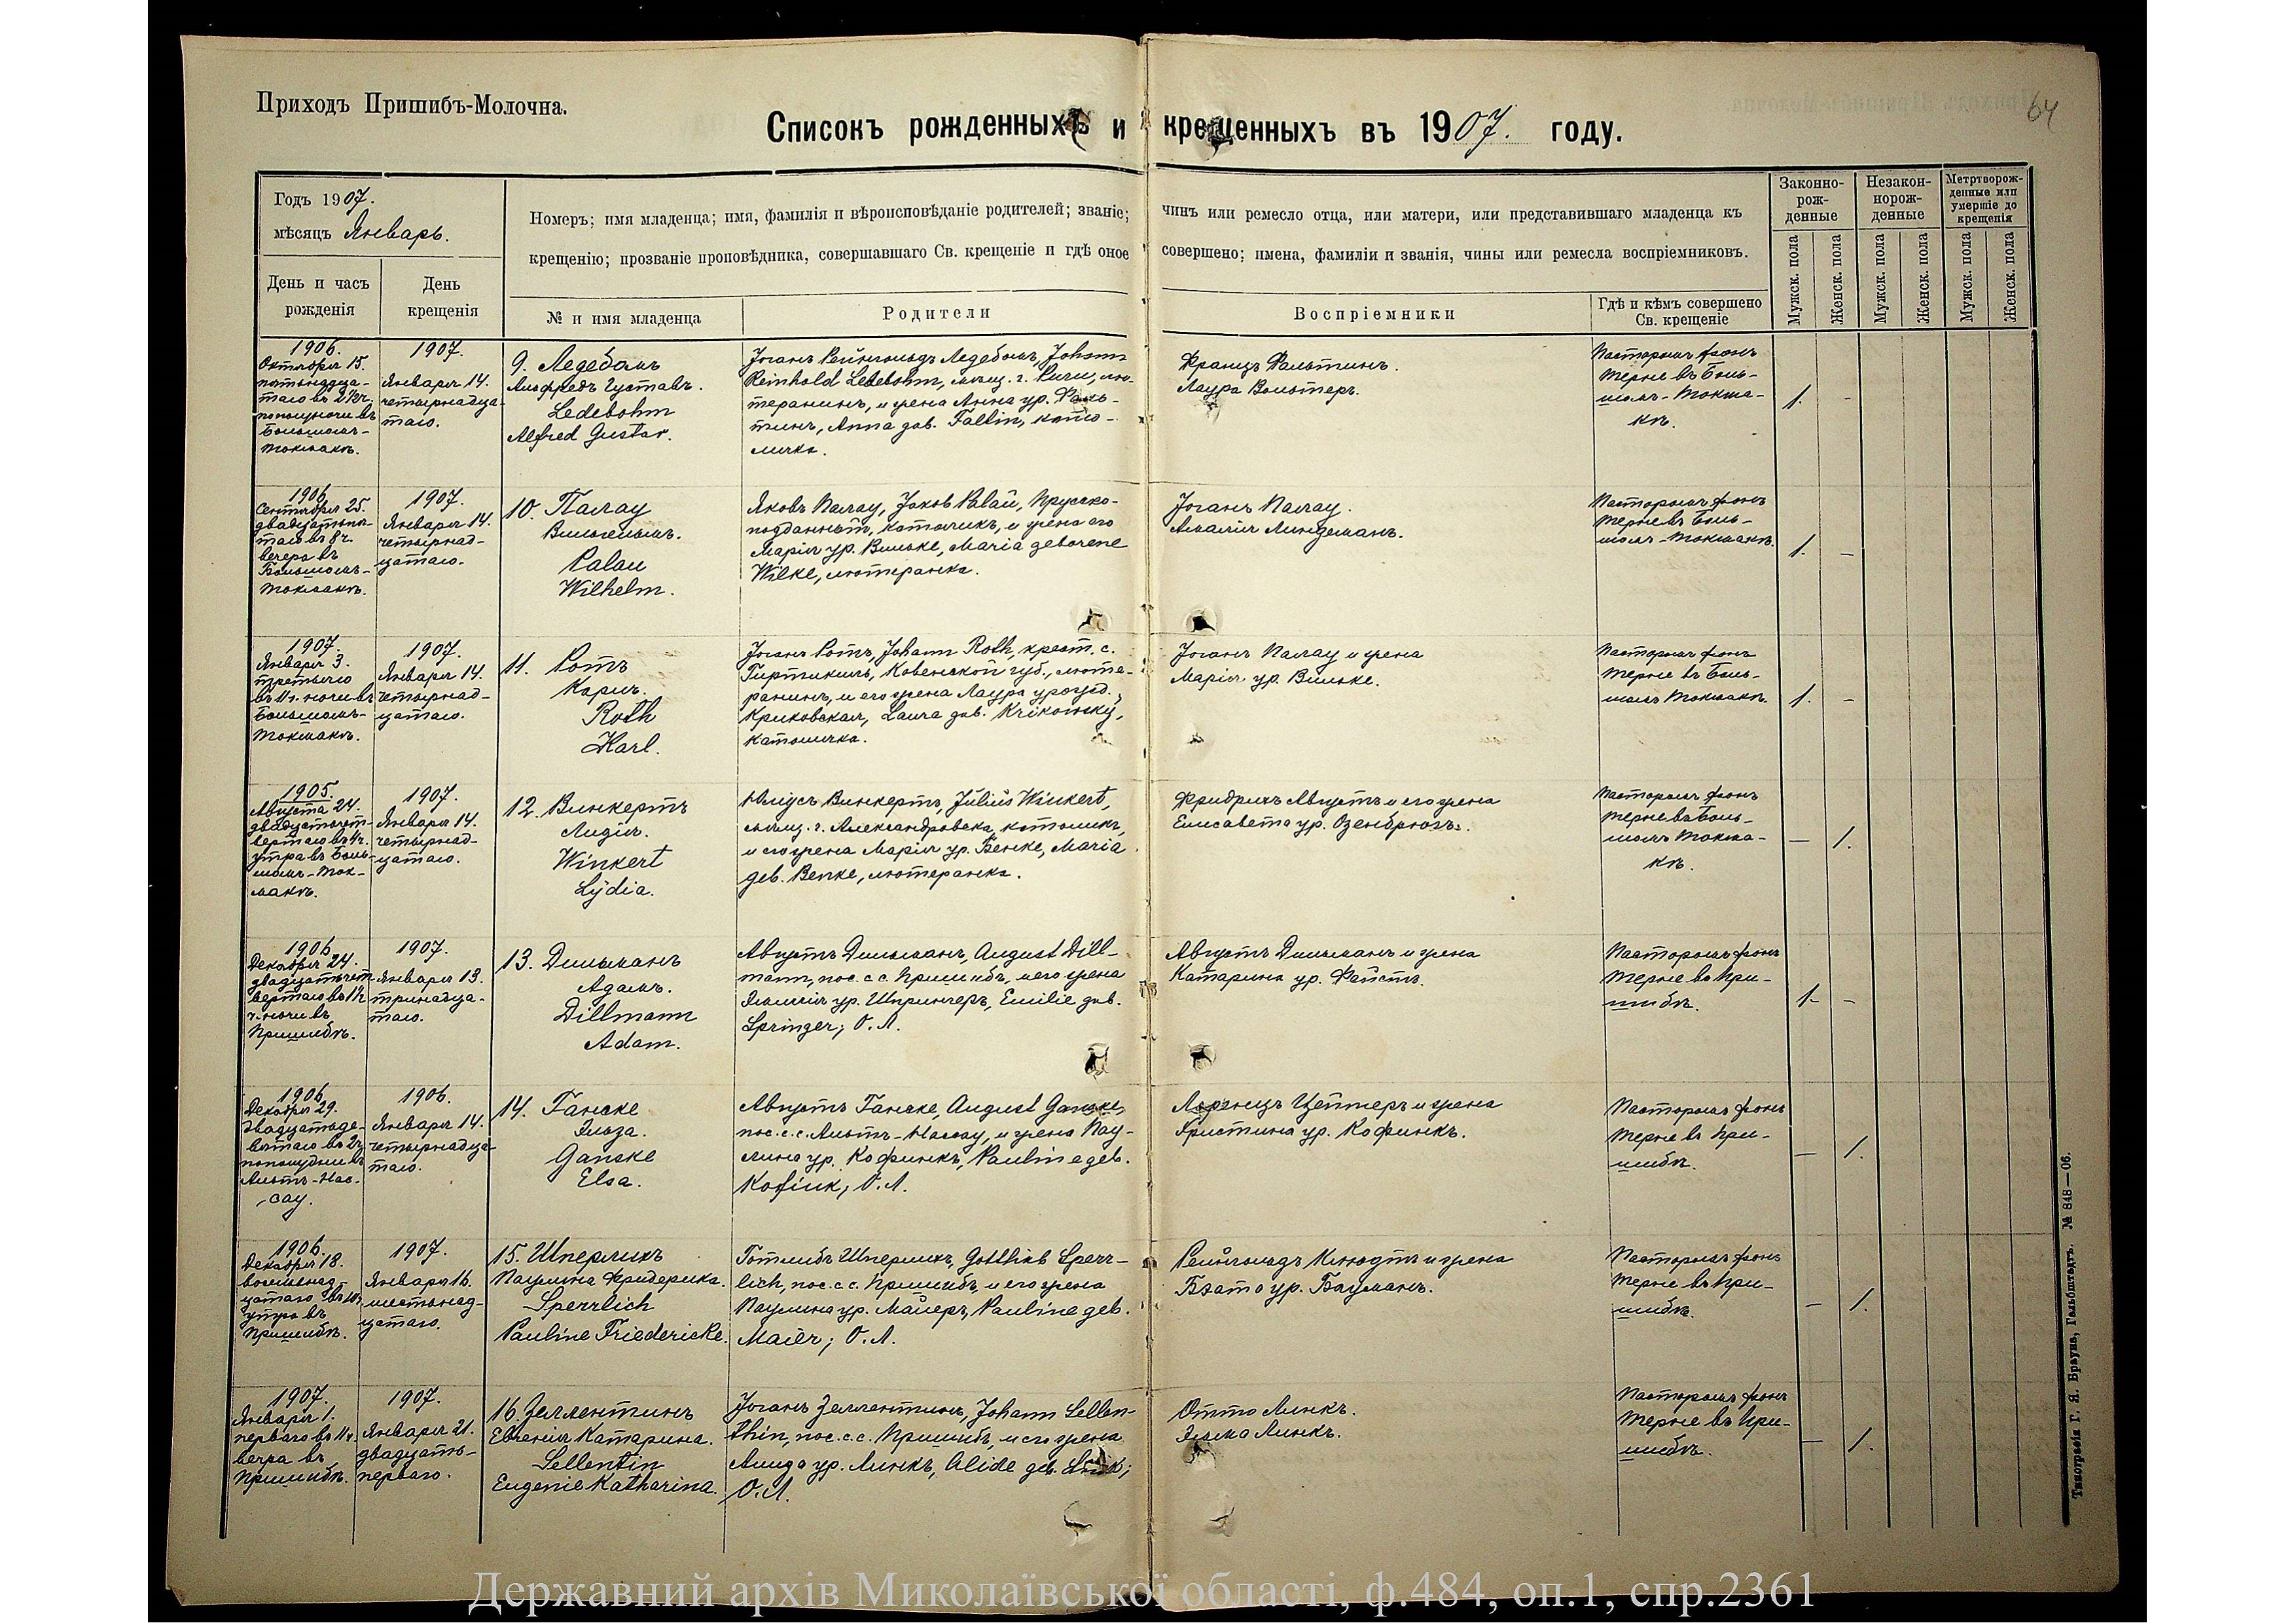 Приходъ Пришибъ-Молочна.
64
Списокъ рожденныхъ и крещенныхъ въ 1907. году.
Годъ 1907.
мѣсяцъ Январь.
День и часъ рожденія
День крещенія
Номеръ; имя младенца; имя, фамилія и вѣроисповѣданіе родителей; званіе; чинъ или ремесло отца, или матери, или представившаго младенца къ
крещенію; прозваніе проповѣдника, совершавшаго Св. крещеніе и гдѣ оное совершено; имена, фамиліи и званія, чины или ремесла воспріемниковъ.
№ и имя младенца
Родители
Воспріемники
Гдѣ и кѣмъ совершено
Св. крещеніе
Законно-
рож-
денные
Незакон-
норож-
денные
Метртворож-
денные или
умершіе до
крещенія
Мужск. пола
Женск. пола
Мужск. пола
Женск. пола
Мужск. пола
Женск. пола
1906.
Октября 15.
пятнадца-
таго въ 2½ ч.
пополуночи въ
Большомъ-
Токмакѣ.
1907.
Января 14.
четырнадца-
таго.
9. Ледебомъ
Альфредъ Густавъ.
Ledebohm
Alfred Gustav.
Іоганъ Рейнгольдъ Ледебомъ, Johann
Reinhold Ledebohm, мѣщ. г. Риги, лю-
теранинъ, и жена Анна ур. Фаль-
тинъ, Anna geb. Faltin, като-
личка.
Францъ Фальтинъ.
Лаура Вольтеръ.
Пасторомъ фонъ
Терне въ Боль-
шомъ-Токма-
кѣ.
1. -
1906
Сентября 25.
двадцатьпя-
таго въ 8 ч.
вечера въ
Большомъ-
Токмакѣ.
1907.
Января 14.
четырнад-
цатаго.
10. Палау
Вильгельмъ.
Palau
Wilhelm.
Яковъ Палау, Jakob Palau, Прусско-
подданный, католикъ, и жена его
Марія ур. Вильке, Maria geborene
Wilke, лютеранка.
Іоганъ Палау.
Амалія Линдеманъ.
Пасторомъ фонъ
Терне въ Боль-
шомъ-Токмакѣ.
1. -
1907.
Января 3.
третьяго
въ 11 ч. ночи въ
Большомъ-
Токмакѣ.
1907.
Января 14.
четырнад-
цатаго.
11. Ротъ
Карлъ.
Roth
Karl.
Іоганъ Ротъ, Johann Roth, крест. с.
Ковенской губ., люте-
ранинъ, и его жена Лаура урожд.
Криковская, Laura geb. Krikowsky,
католичка.
Іоганъ Палау и жена
Марія ур. Вильке.
Пасторомъ фонъ
Терне въ Боль-
шомъ Токмакѣ.
1. -
1905.
Августа 24.
двадцатьчет-
вертаго въ 4 ч.
утра въ Боль-
шомъ-Ток-
макѣ.
1907.
Января 14.
четырнад-
цатаго.
12. Винкертъ
Лидія.
Winkert
Lydia.
Юліусъ Винкертъ, Julius Winkert,
мѣщ. г. Александровска, католикъ,
и его жена Марія ур. Венке, Maria
geb. Benke, лютеранка.
Фридрихъ Августъ и его жена
Елисавета ур. Озенбрюгъ.
Пасторомъ фонъ
Терне въ Боль-
шомъ Токма-
кѣ.
— 1.
1906
Декабря 24.
двадцатьчет-
вертаго въ 1½
ч. ночи въ
Пришибѣ.
1907.
Января 13.
тринадца-
таго.
13. Дильманъ
Адамъ.
Dillmann
Adam.
Августъ Дильманъ, August Dill-
mann, пос. с. с. Пришибъ, и его жена
Эмилія ур. Шпрингеръ, Emilie geb.
Springer; О. Л.
Августъ Дильманъ и жена
Катарина ур. Фейстъ.
Пасторомъ фонъ
Терне въ При-
шибѣ.
1 -
1906
Декабря 29.
двадцатьде-
вятаго въ 2 ч.
пополудни въ
Альтъ-Нас-
сау.
1906.
Января 14.
четырнадца-
таго.
14. Ганске
Эльза.
Ganske
Elsa.
Августъ Ганске, August Ganske,
пос. с. с. Альтъ-Нассау, и жена Пау-
лина ур. Кофинкъ, Pauline geb.
Kofink; О. Л.
Лоренцъ Цеттеръ и жена
Христина ур. Кофинкъ.
Пасторомъ фонъ
Терне въ При-
шибѣ.
— 1.
1906.
Декабря 18.
восемнад-
цатаго въ 10 ч.
утра въ
Пришибѣ.
1907.
Января 16.
шестьнад-
цатаго.
15. Шперлихъ
Паулина Фридерика.
Sperrlich
Pauline Friedericke.
Готлибъ Шперлихъ, Gottlieb Sperr-
lich, пос. с. с. Пришибъ, и его жена
Паулина ур. Майеръ, Pauline geb.
Maier; О. Л.
Рейнгольдъ Клюдтъ и жена
Беата ур. Бауманъ.
Пасторомъ фонъ
Терне въ При-
шибѣ.
— 1.
1907.
Января 1.
перваго въ 11 ч.
вечра въ
Пришибѣ.
1907.
Января 21.
двадцать-
перваго.
16. Зеллентинъ
Евгенія Катарина.
Sellentin
Eugenie Katharina.
Іоганъ Зеллентинъ, Johann Sellen-
thin, пос. с. с. Пришибъ, и его жена
Алида ур. Линкъ, Alide geb. Link;
О. Л.
Отто Линкъ.
Эмма Линкъ.
Пасторомъ фонъ
Терне въ При-
шибѣ.
— 1.
Типографія Г. Я. Брауна, Гальбштадтъ. № 848—06.
Державний архів Миколаївської області, ф.484, оп.1, спр.2361